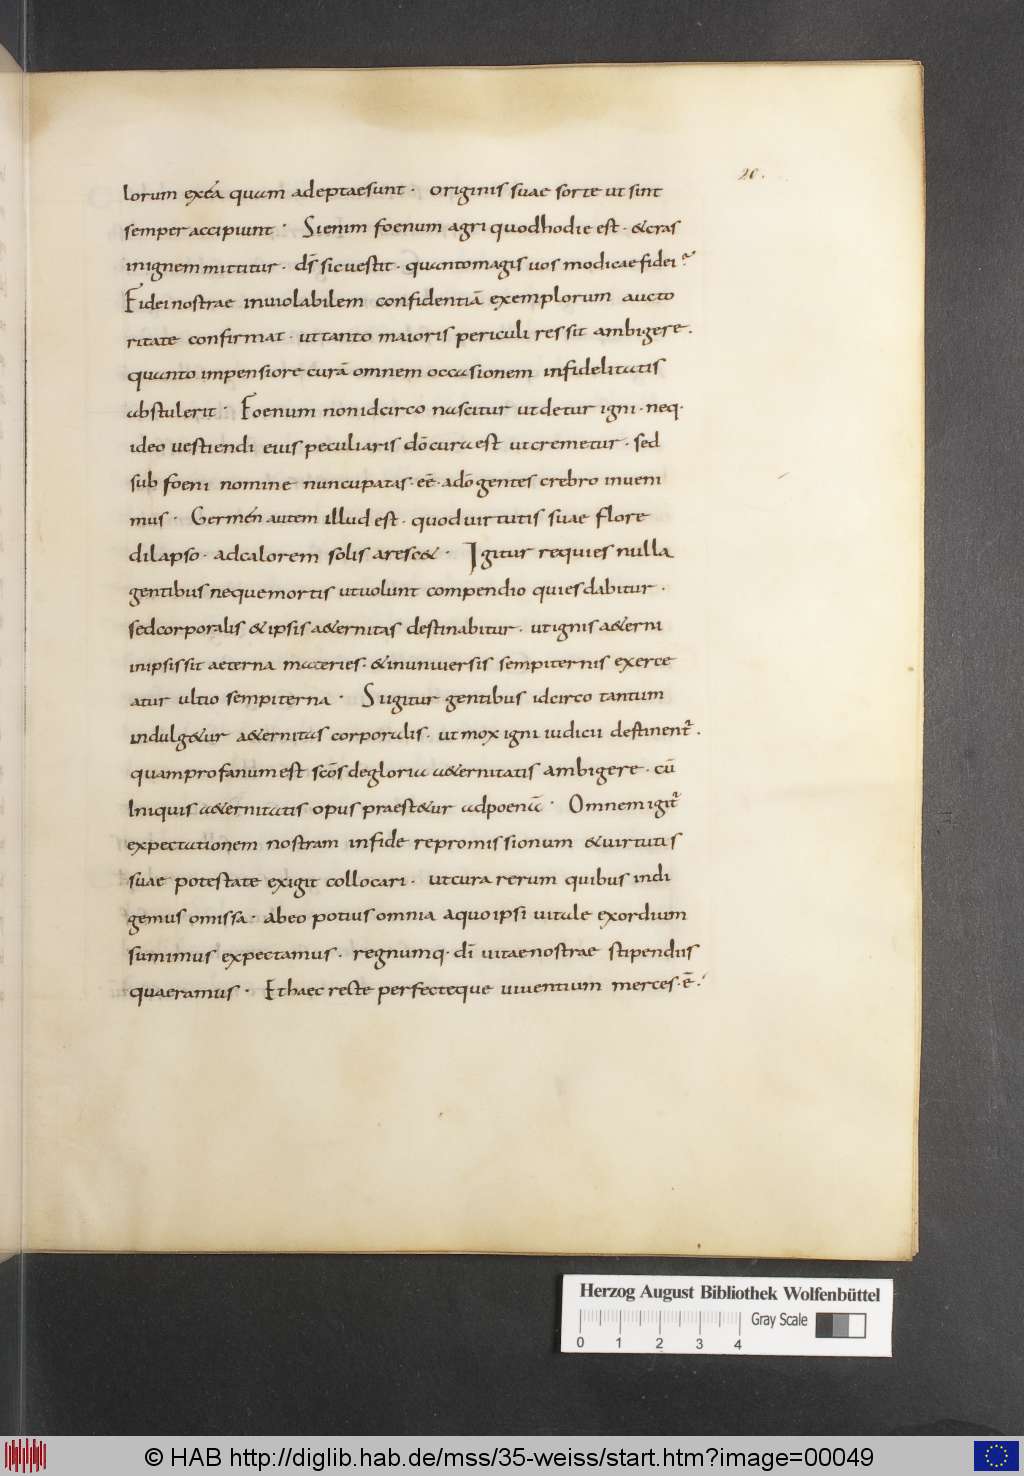 20.
lorum exea quam adeptaesunt · originis suae sorte ut sint
semper accipiunt · Sienim foenum agri quodhodie est · &cras
inignem mittitur · ds̄ sicuestit · quantomagis uos modicae fidei
Fidei nostrae inuiolabilem confidentiā exemplorum aucto
ritate confirmat · ut tanto maioris periculi res sit ambigere.
quanto impensiore curā omnem occasionem infidelitatis
abstulerit · Foenum non idcirco nascitur ut detur igni · neq·
ideo uestiendi eius peculiaris dō cura est ut cremetur · sed
sub foeni nomine nuncupatas · eē · adō gentes crebro inueni
mus · Germén autem illud est · quod uirtutis suae flore
dilapso · adcalorem solis aresc& · Igitur requies nulla
gentibus neque mortis ut uolunt compendio quies dabitur ·
sed corporalis & ipsis a&ernitas destinabitur · ut ignis a&erni
inipsis sit aeterna materies · & inuniuersis sempiternis exerce
atur ultio sempiterna · Sugitur gentibus idcirco tantum
indulg&ur a&ernitas corporalis · ut mox igni iudicii destinent᷑ .
quam profanum est scōs degloria a&ernitatis ambigere · cū
Iniquis a&ernitatis opus praest&ur adpoenā · Omnem igit᷑
expectationem nostram infide repromissionum & uirtutis
suae potestate exigit collocari · ut cura rerum quibus indi
gemus omissa · abeo potius omnia aquo ipsi uitale exordium
sumimus expectamus · regnumq· dī uitae nostrae stipendiis
quaeramus · Et haec recte perfecteque uiuentium merces · ē ·
Herzog August Bibliothek Wolfenbüttel
Gray Scale
0 1 2 3 4
© HAB http://diglib.hab.de/mss/35-weiss/start.htm?image=00049